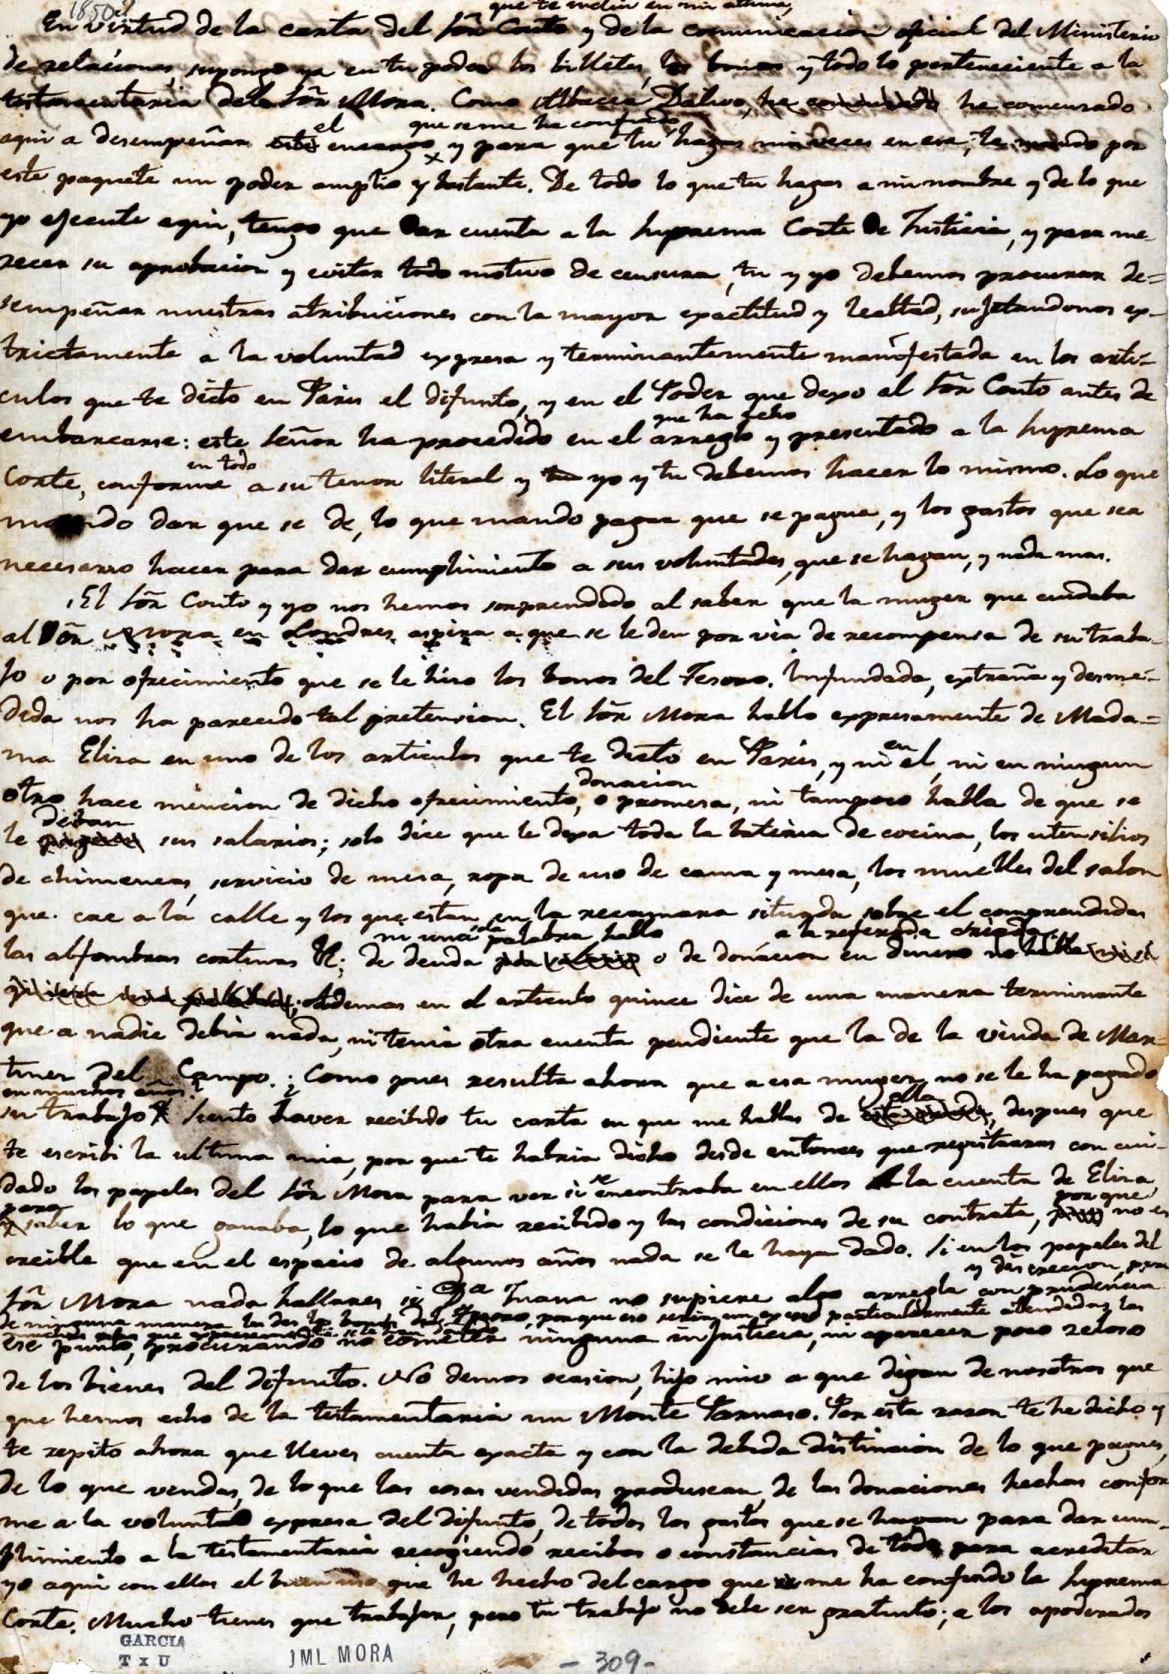 1850
que te
En virtud de la carta del Sör Couto y de la comunicacion oficial del Ministerio
de relaciones, supongo ya en tu poder los billetes, los bonos y todo lo perteneciente a la
testamentaria del Sör Mora. Como Albacea Dativo, he comenzado he comenzado
el que se me ha confiado
aqui a desempeñar este encargo, y para que tu hagas mis veces en esa, te mando por
este paquete un poder amplio y bastante. De todo lo que tu hagas a mi nombre y de lo que
yo ejecute aqui, tengo que dar cuenta a la Suprema Corte de Justicia, y para me-
recer su aprobacion y evitar todo motivo de censura, tu y yo debemos procurar de=
sempeñar nuestras atribuciones con la mayor exactitud y lealtad, sujetandonos ex-
trictamente a la voluntad expresa y terminantemente manifestada en los arti-
culos que te dictó en Paris el difunto, y en el Poder que dexo el Sör Couto antes de
que ha hecho
embarcarse: este Señor ha procedido en el arreglo y presentado a la Suprema
en todo
Corte, conforme a su tenor literal y tu yo y tu debemos hacer lo mismo. Lo que
mando dar que se de, lo que mando pagar que se pague, y los gastos que sea
necesario hacer para dar cumplimiento a sus voluntades, que se hagan, y nada mas.
El Sör Couto y yo nos hemos sorprendido al saber que la muger que cuidaba
al Sör Mora en Londres aspira a que se le den por via de recompensa de su traba-
jo o por ofrecimiento que se le hizo los bonos del Tesoro. Infundada, extraña y desme-
dida nos ha parecido tal pretension. El Sör Mora habló expresamente de Mada=
ma Elisa en uno de los articulos que te dictó en Paris, y ni en el, ni en ningun
donacion
otro hace mencion de dicho ofrecimiento, o promesa, ni tampoco habla de que se
deban
le paguen sus salarios; solo dice que le dexa toda la bateria de cocina, los utensilios
de chimeneas, servicio de mesa, ropa de uso de cama y mesa, los muebles del salon
que cae a la calle y los que estan en la recamara situada sobre el comprendidas
ni una sola palabra hablo a la referida criada
las alfombras cortinas &; de deuda o de donacion en dinero no habla
Ademas en el articulo quince dice de una manera terminante
que a nadie debia nada, ni tenia otra cuenta pendiente que la de la viuda de Mar-
tinez del Campo. ¿Como pues resulta ahora que a esa muger no se le ha pagado
en muchos años
ella
su trabajo? Siento haver recibido tu carta en que me hablas de despues que
te escribi la ultima mia, por que te habria dicho desde entonces que registraras con cui-
dado los papeles del Sör Mora para ver si se encontraba en ellos la cuenta de Elisa
para por que
saber lo que ganaba, lo que habia recibido y las condiciones de su contrata, no es
creible que en el espacio de algunos años nada se le haya dado. Si en los papeles del
y discrecion
Sör Mora nada hallares, si Da Juana no supiere algo arregla con prudencia
de ninguna manera les des los bonos del Tesoro, porque eso seria un exceso particularmente atendidas las
ese punto, procurando no cometer ninguna injusticia, ni aparecer poco zeloso
de los bienes del difunto. No demos ocasion, hijo mio a que digan de nosotros que
que hemos echo de la testamentaria un Monte Parnaso. Por esta razon te he dicho y
te repito ahora que lleves cuenta exacta y con la debida distincion de lo que pagues,
de lo que vendas, de lo que las cosas vendidas produscan, de las donaciones hechas confor
me a la voluntad expresa del difunto, de todos los gastos que se hagan para dar cum-
plimiento a la testamentaria recogiendo recibos o constancias de todo para acreditar
yo aqui con ellos el buen uso que he hecho del cargo que me ha confiado la Suprema
Corte. Mucho tienes que trabajar, pero tu trabajo no debe ser gratuito; a los apoderados
GARCIA
T x U
JML MORA
- 309 -